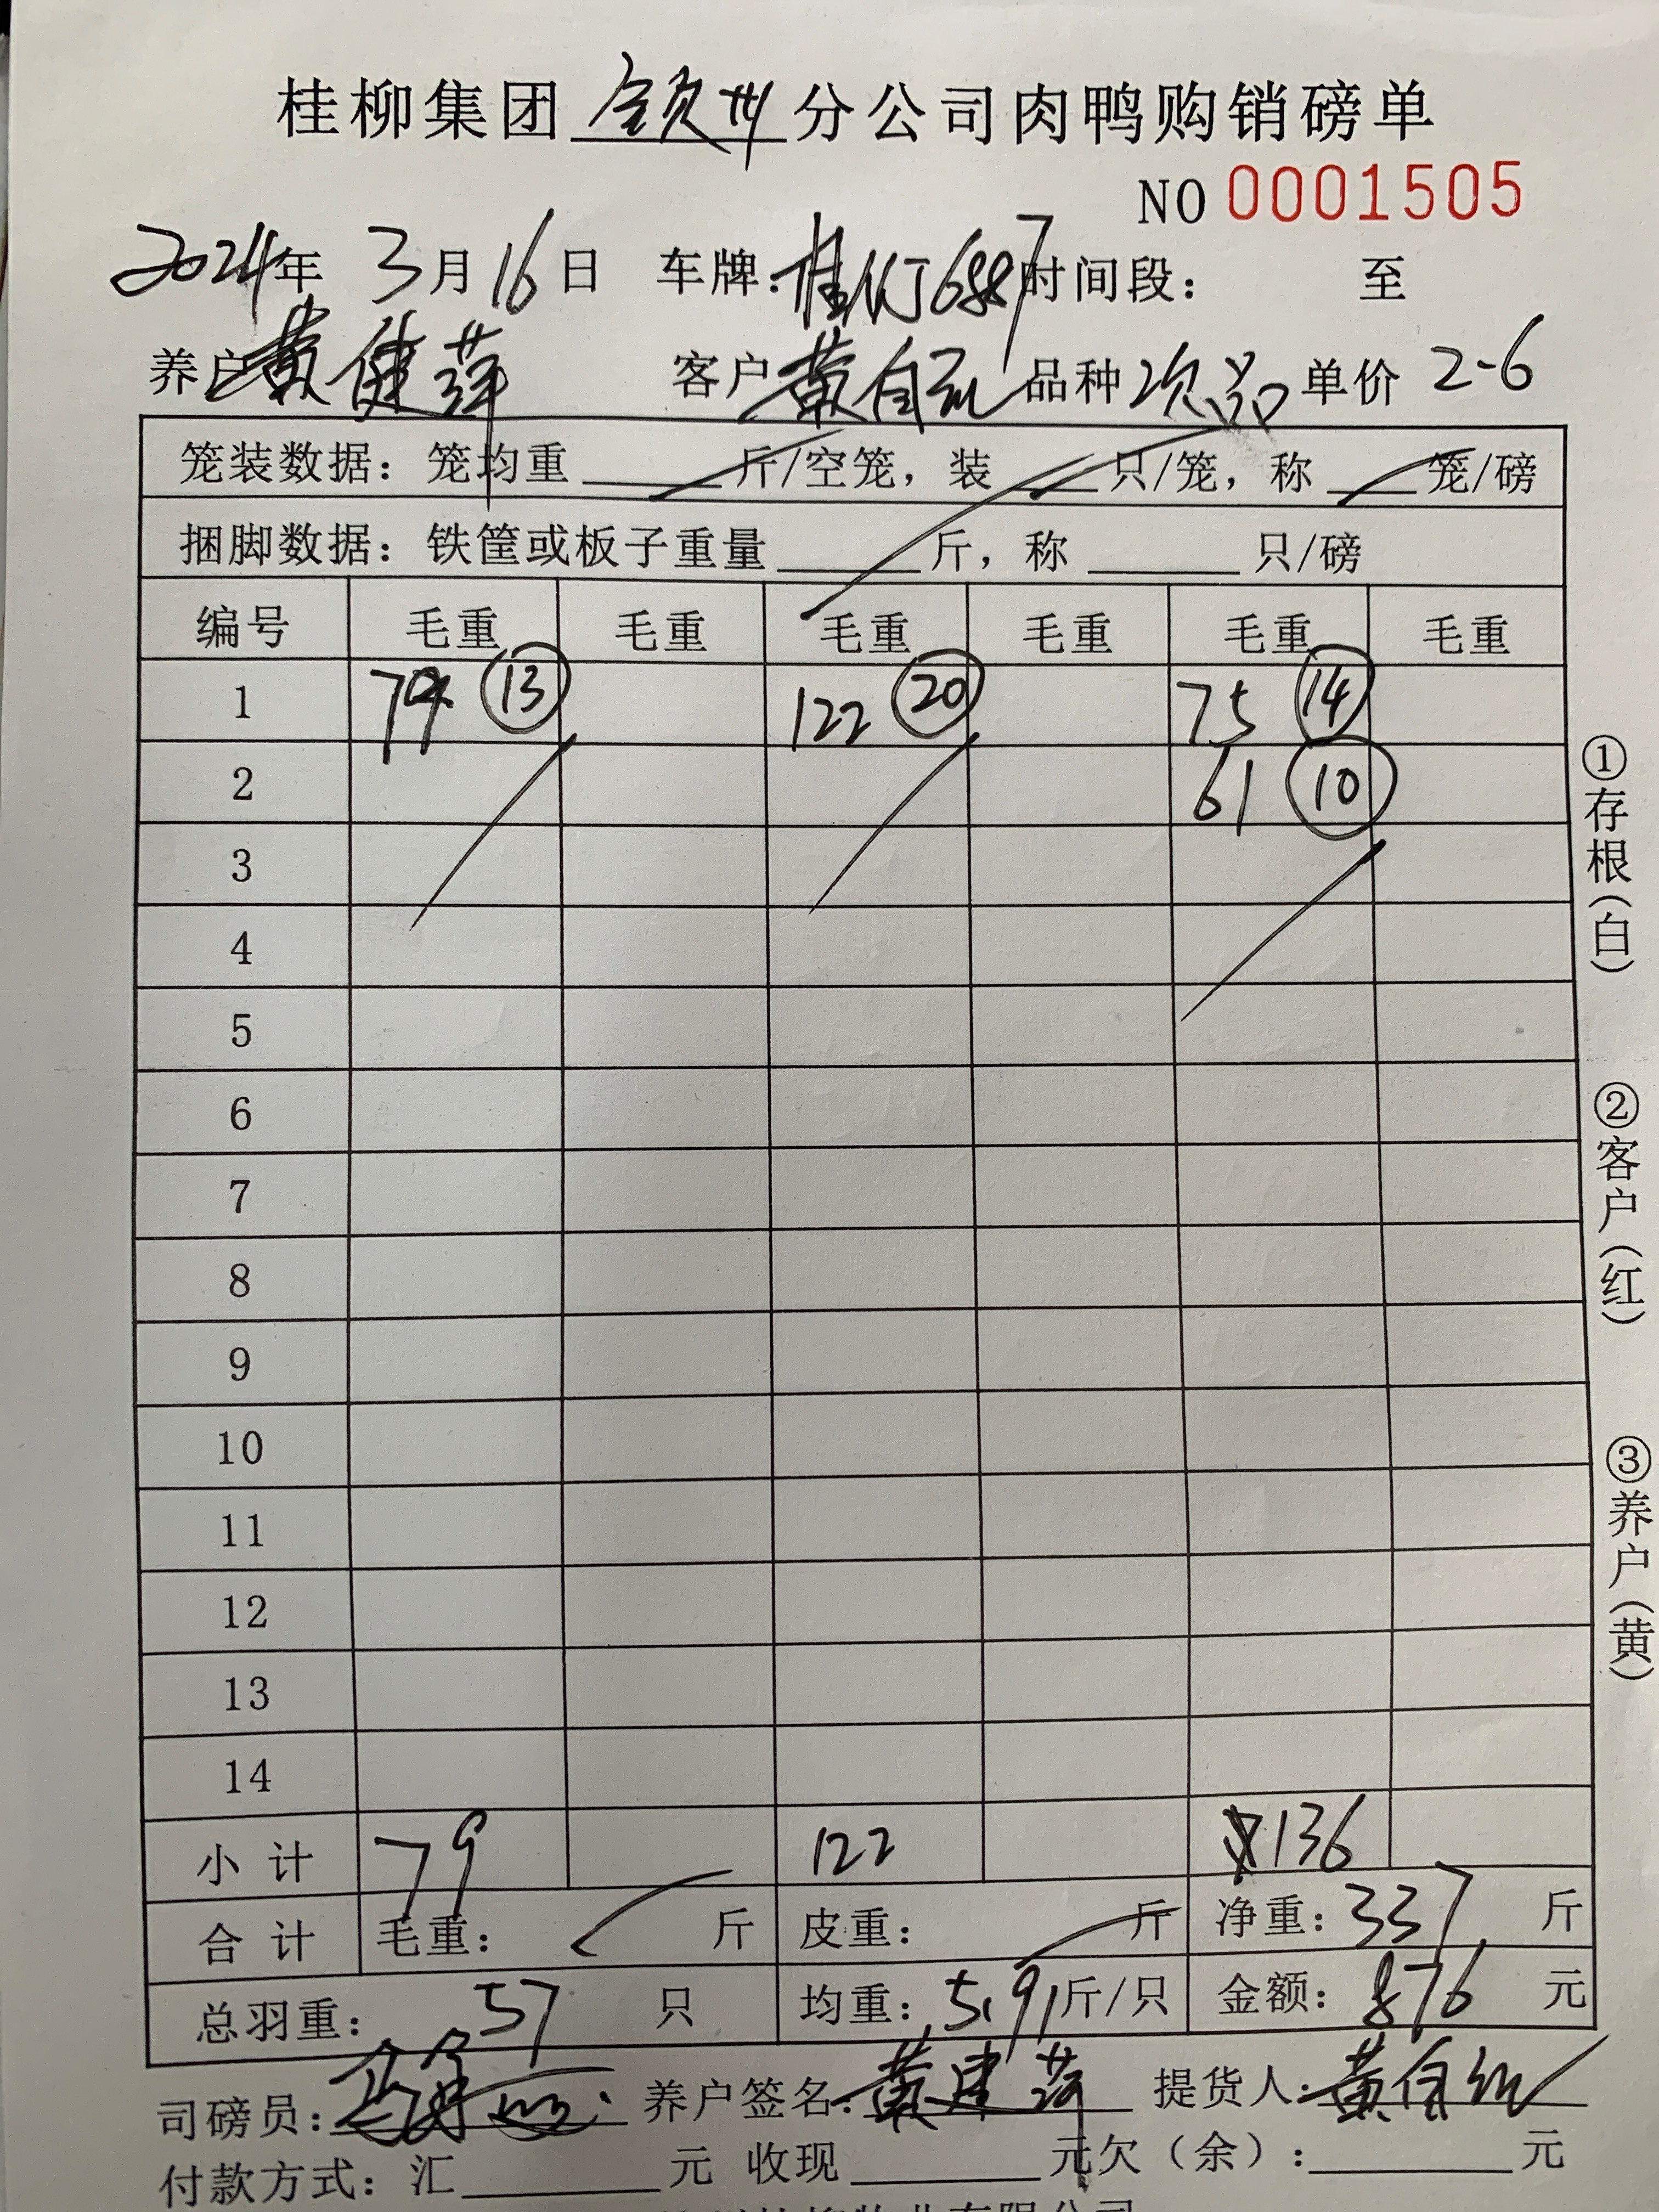 桂柳集团 钦州 分公司肉鸭购销磅单
NO 0001505
2024年 3月16日 车牌: 时间段: 至
养户 黄健萍 客户 黄自 品种 次品 单价 2-6
笼装数据: 笼均重 斤/空笼, 装 只/笼, 称 笼/磅
捆脚数据: 铁筐或板子重量 斤, 称 只/磅
编号 毛重 毛重 毛重 毛重 毛重 毛重
1 79 13 122 20 75 14
2 61 10
3
4
5
6
7
8
9
10
11
12
13
14
小计 79 122 136
合计 毛重: 斤 皮重: 斤 净重: 337 斤
总羽重: 57 只 均重: 5.91 斤/只 金额: 876 元
司磅员: 养户签名: 黄建萍 提货人: 黄自红
付款方式: 汇 元 收现 元 欠(余): 元
①存根(白)
②客户(红)
③养户(黄)